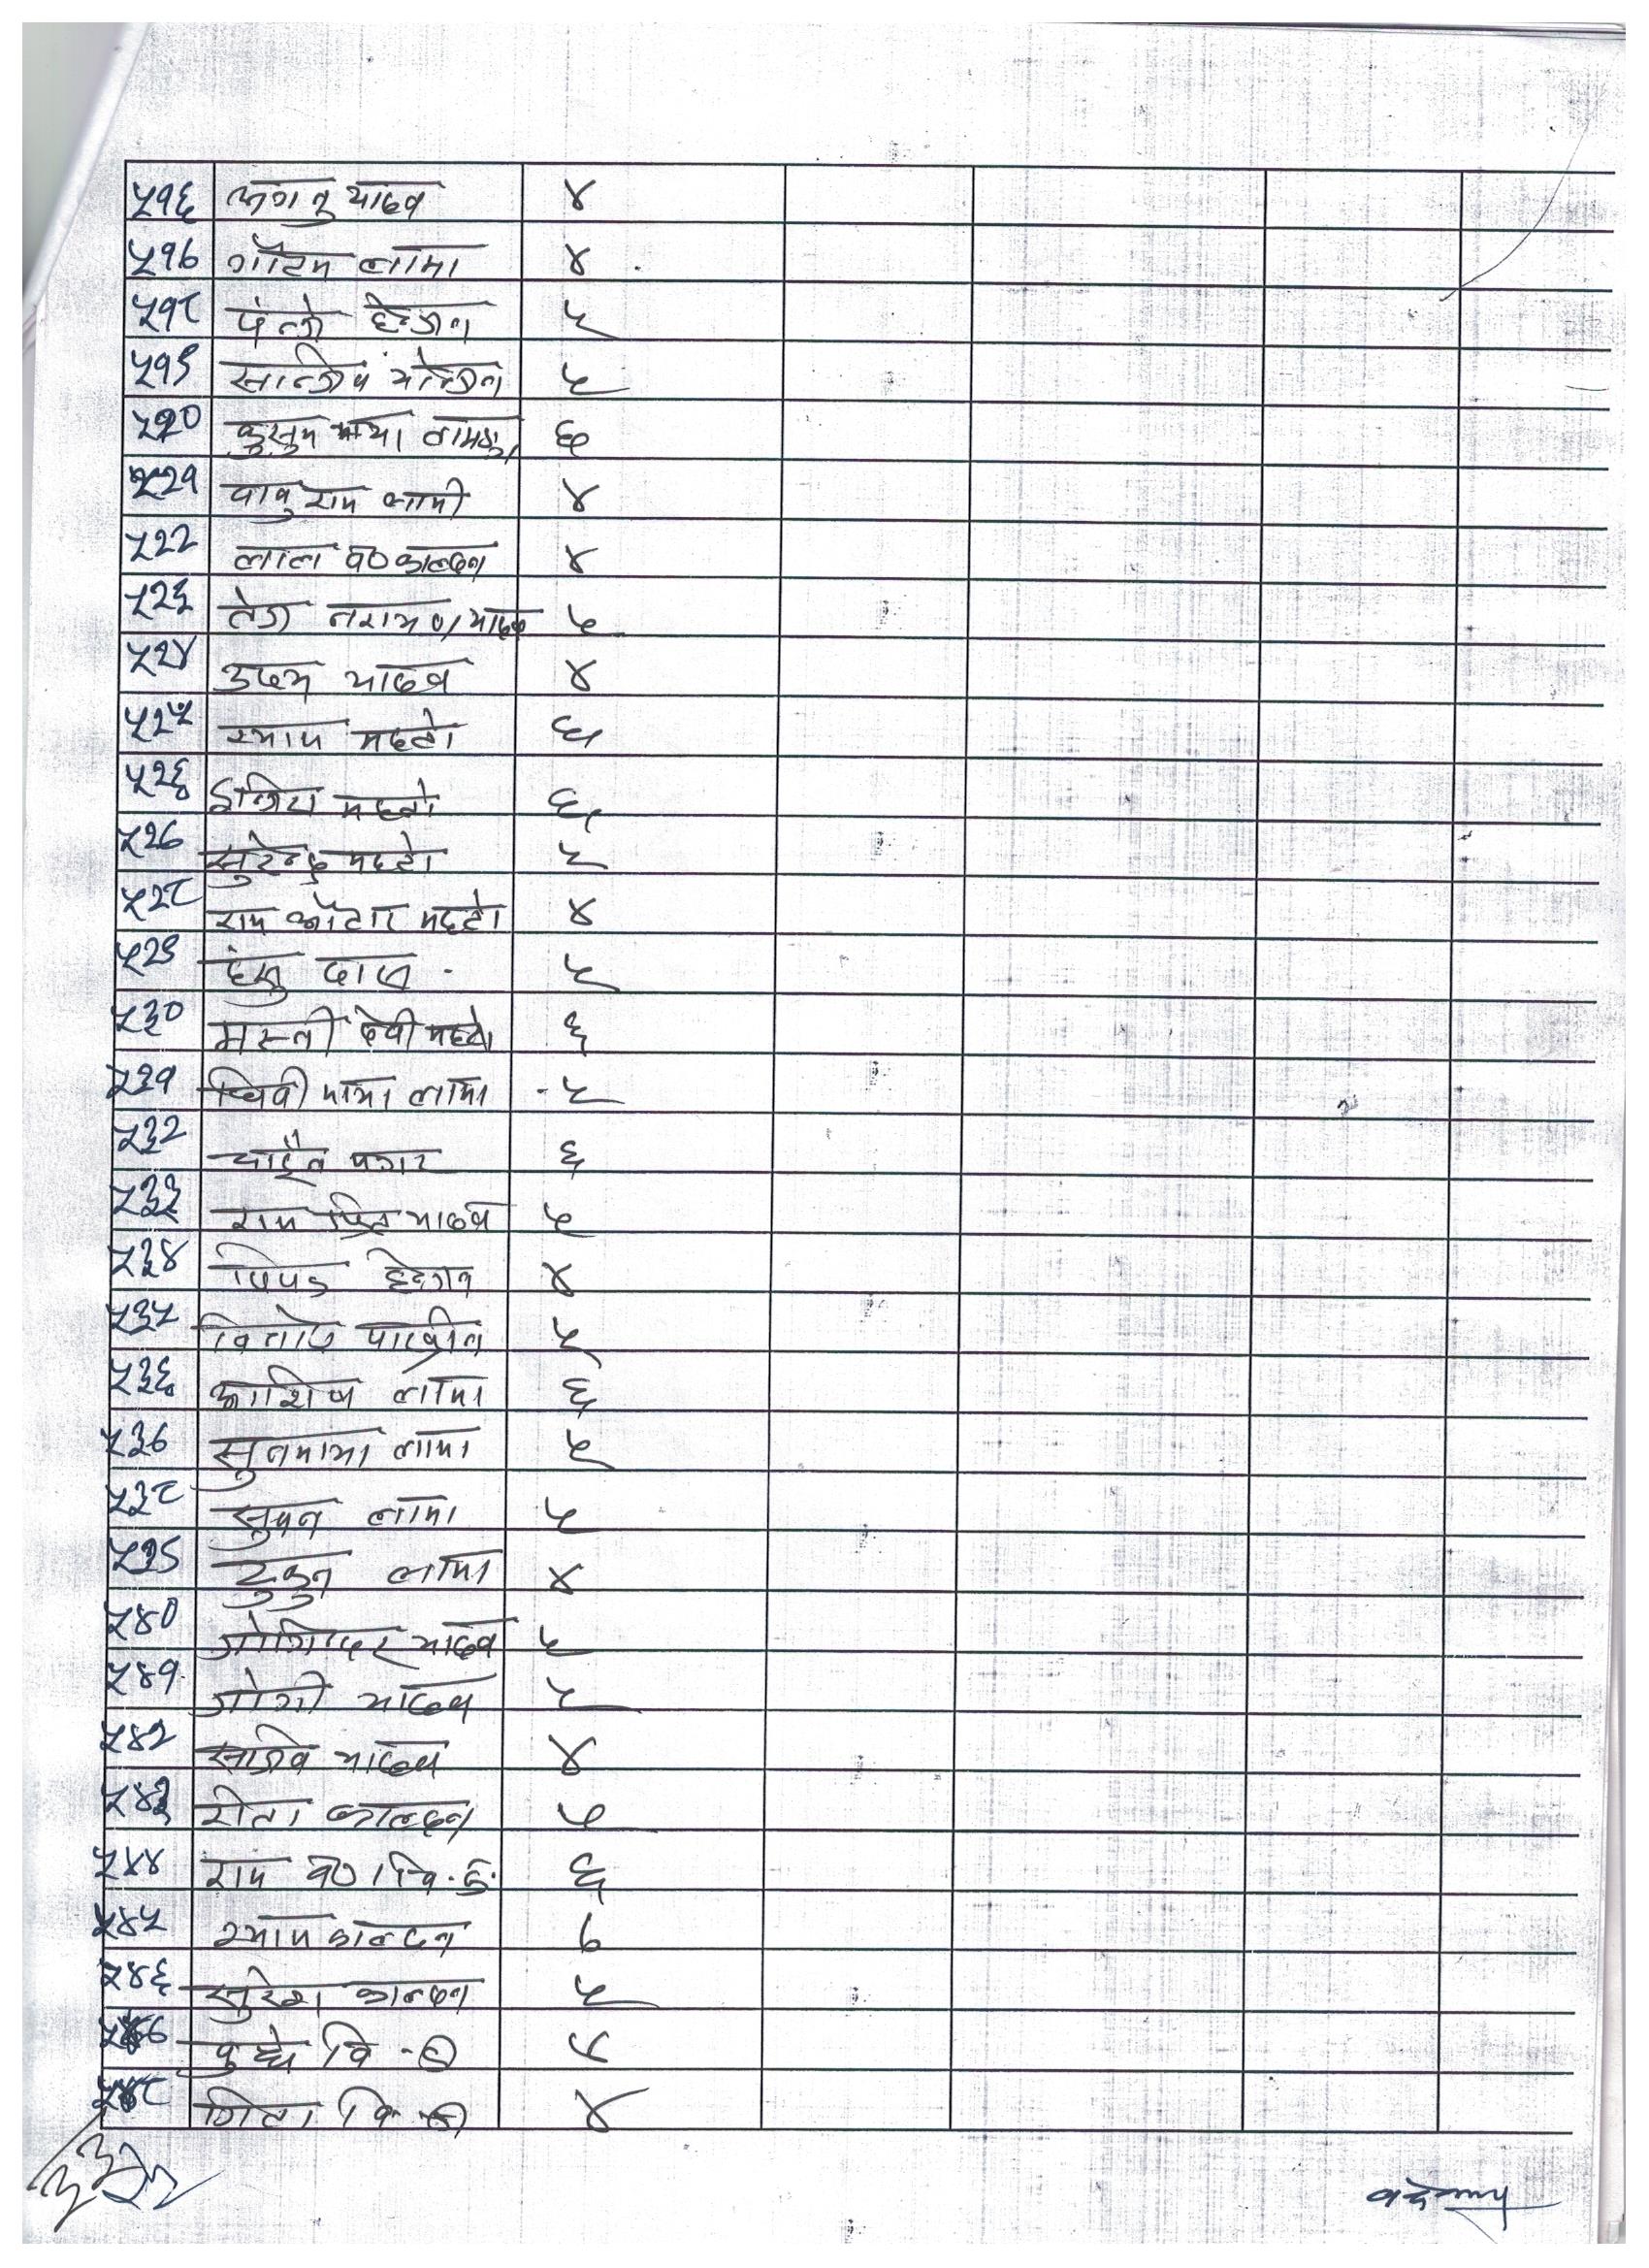 ५१६ लगनु यादव ४
५१७ गौतम लामा ४
५१८ पेन्जो घेजन ५
५१९ सान्जिव योन्जन ५
५२० कुसुम माया तामाङ ६
५२१ बाबु राम लामी ४
५२२ लाल ब० काल्दन ४
५२३ तेज नरायण यादव ५
५२४ उदय यादव ४
५२५ श्याम महतो ६
५२६ महतो ६
५२७ सुरेन्द्र महतो ५
५२८ राम औतार महतो ४
५२९ हंसु दास ५
५३० मस्ती देवी महतो ६
५३१ माया लामा ५
५३२ याईन मगर ६
५३३ राम यादव ५
५३४ ४
५३५ विनोद पाख्रीन ५
५३६ आशिष लामा ६
५३७ सुनमाया लामा ५
५३८ सुमन लामा ५
५३९ लामा ४
५४० जोगिन्दर यादव ५
५४१ जोगी यादव ५
५४२ सजिव यादव ४
५४३ रीता काल्दन ५
५४४ राम ब० वि.क. ६
५४५ श्याम काल्दन ७
५४६ सुरेश काल्दन ५
५४७ बुद्धे वि.क ४
५४८ गिता वि.क ४